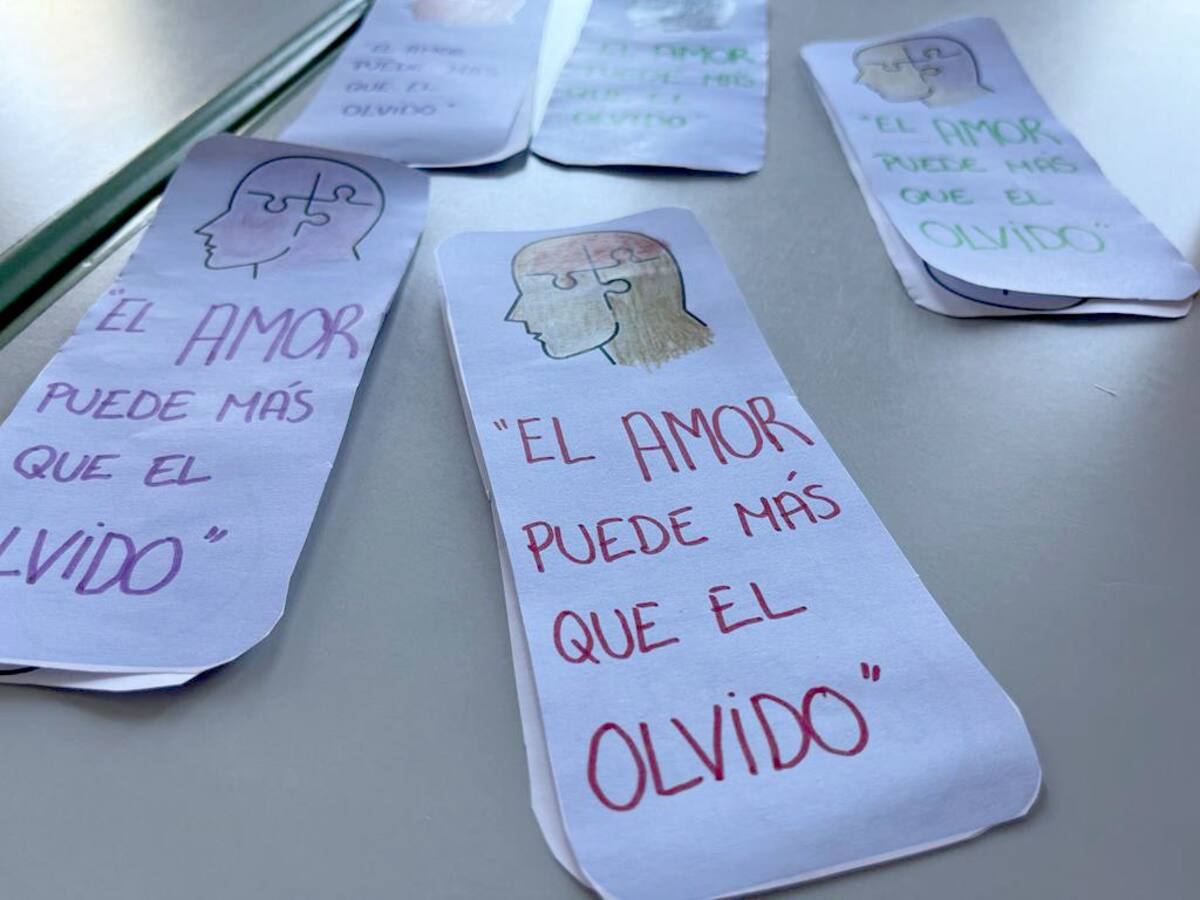 "EL AMOR
PUEDE MÁS
QUE EL
OLVIDO"
"EL AMOR
PUEDE MÁS
QUE EL
OLVIDO"
"EL AMOR
PUEDE MÁS
QUE EL
OLVIDO"
"EL AMOR
PUEDE MÁS
QUE EL
LVIDO"
"EL AMOR
PUEDE MÁS
QUE EL
OLVIDO"